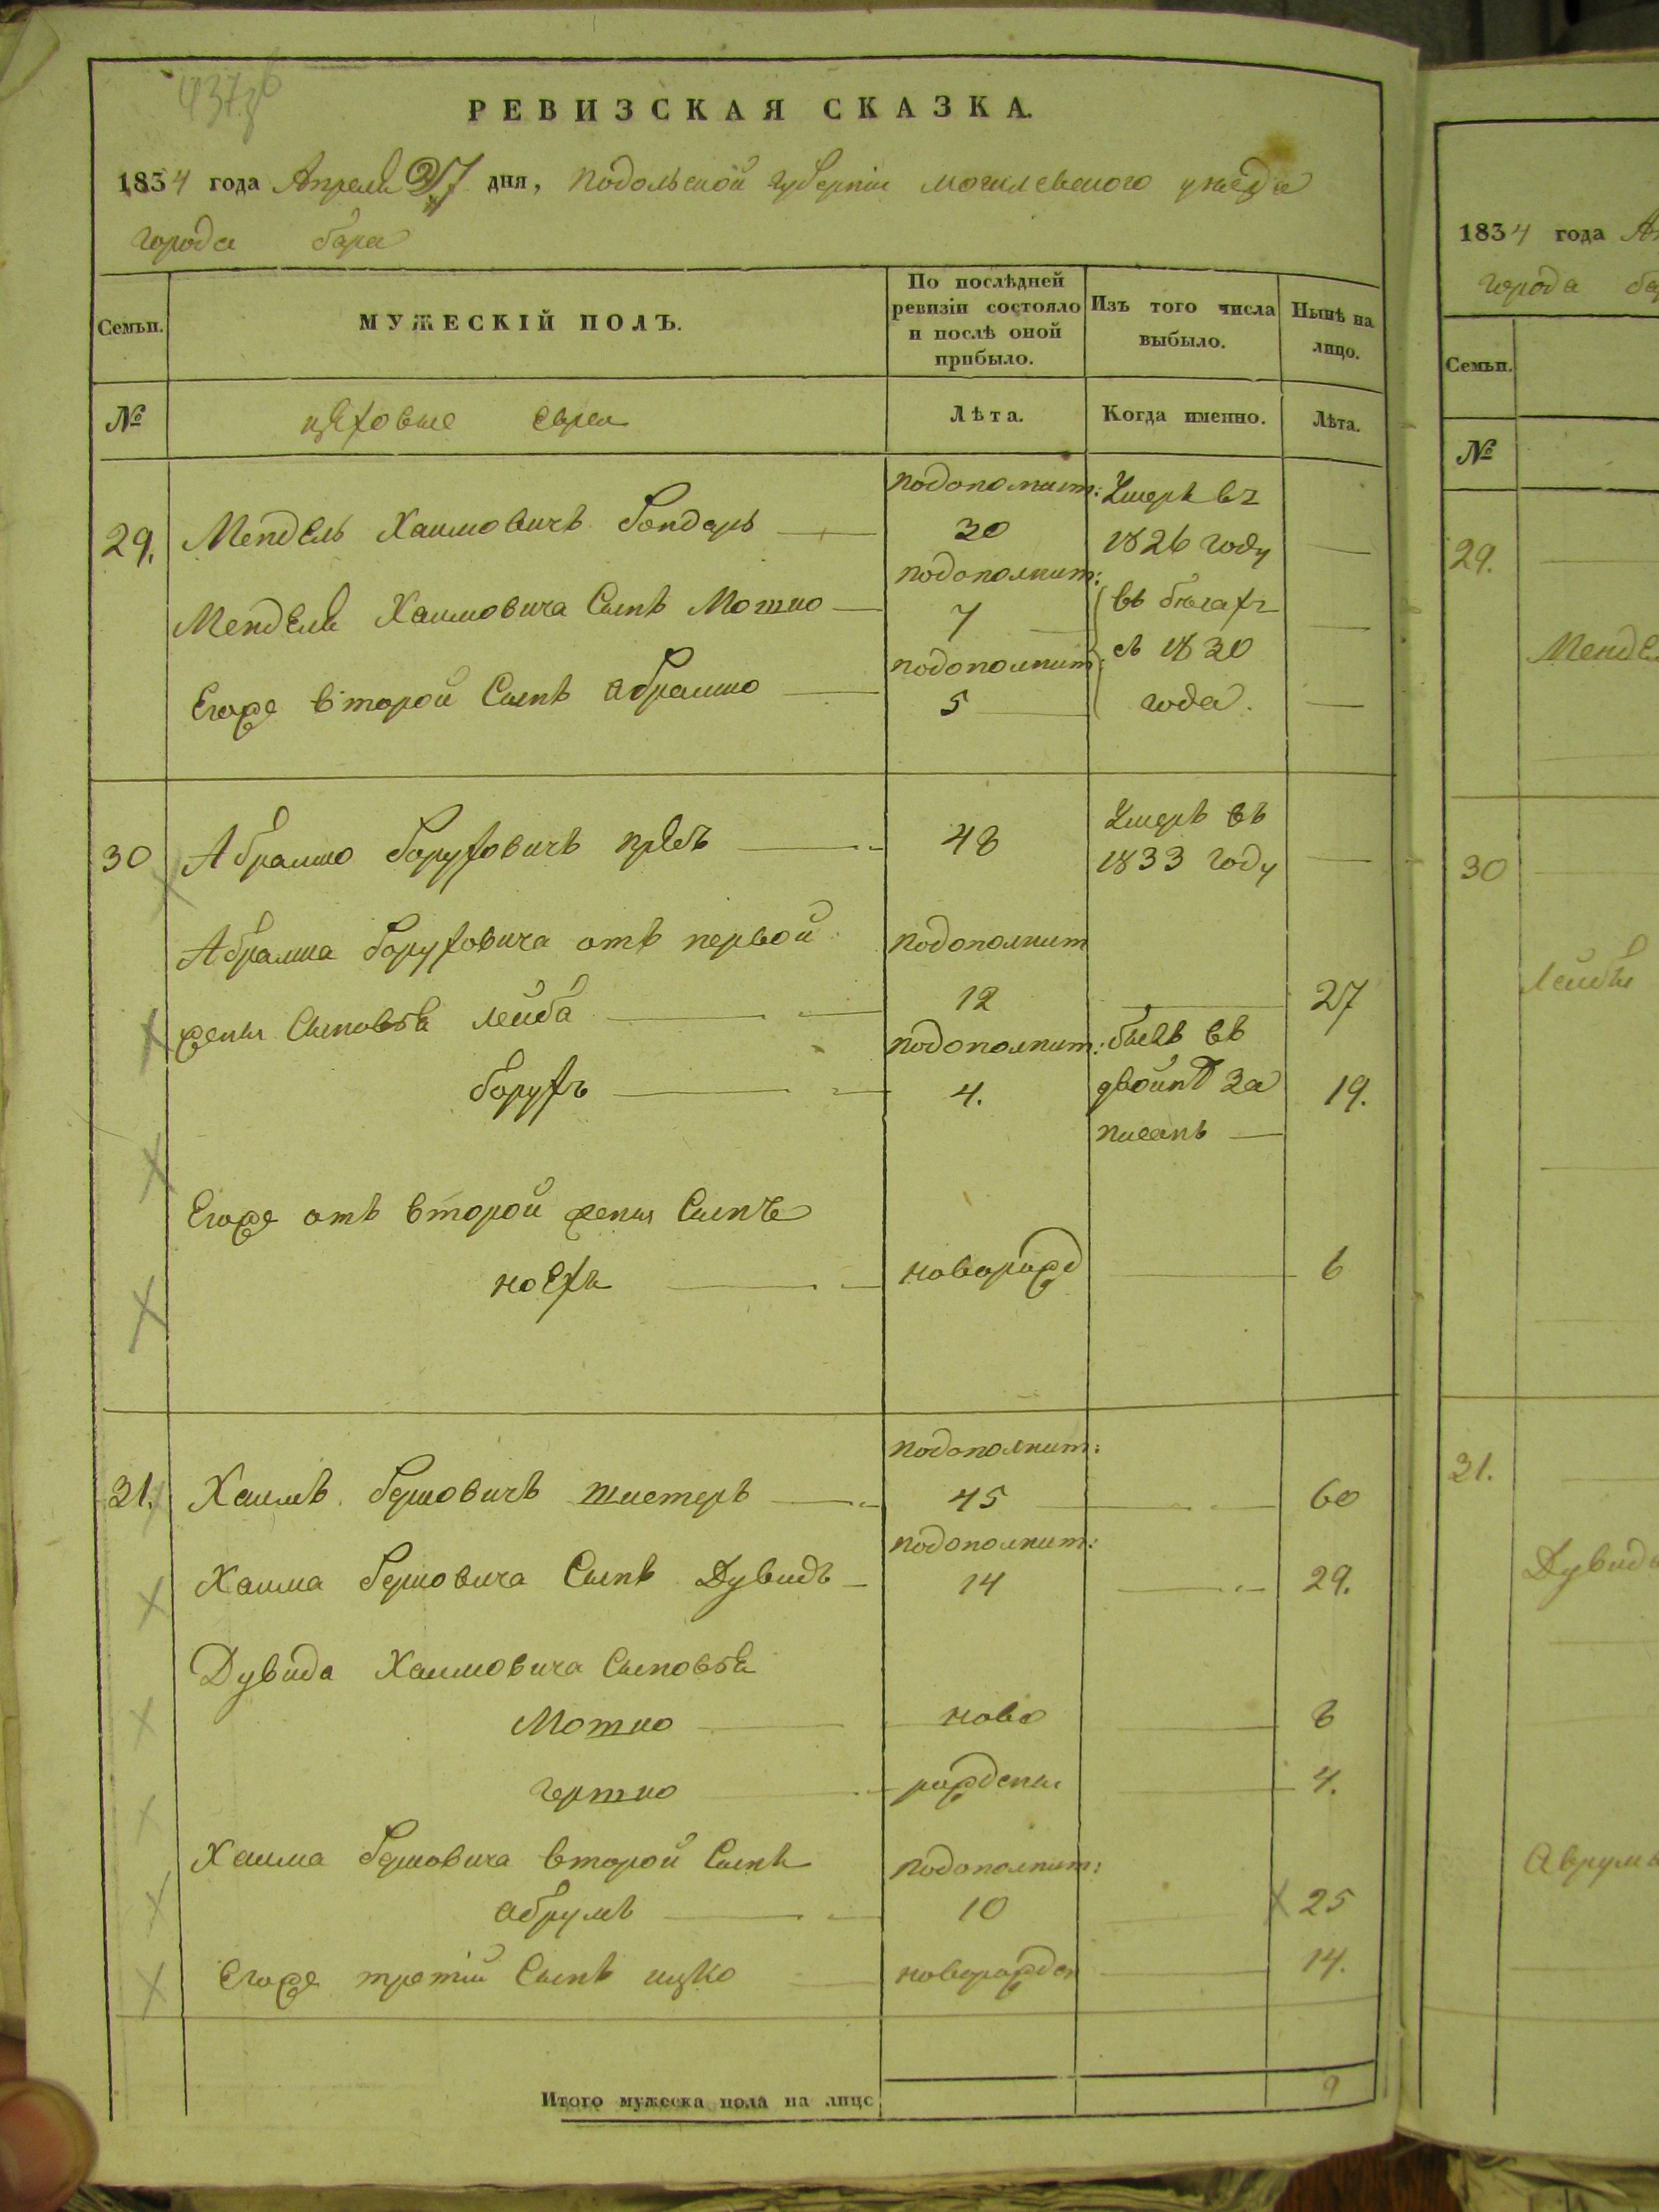 РЕВИЗСКАЯ СКАЗКА.
1834 года Апреля 27 дня, Подольской губернии могилевского уезда
города бара
Семьи.
МУЖЕСКІЙ ПОЛЪ.
По послѣдней ревизіи состояло и послѣ оной прибыло.
Изъ того числа выбыло.
Нынѣ на лицо.
№
цеховые евреи
Лѣта.
Когда именно.
Лѣта.
подополнит: Умеръ въ
29. Мендель Хаимовичъ бондарь 30 1826 году
подополнит:
Менделя Хаимовича Сынъ Мошко 7 въ бегахъ
подополнит: съ 1830
Егоже второй Сынъ абрамко 5 года.
Умеръ въ
30 Абрамко боруховичъ 48 1833 году
Абрамка боруховича отъ первой подополнит
жены Сыновья лейба 12 27
подополнит: былъ въ
борухъ 4. двойнѣ за 19.
писанъ
Егоже отъ второй жены Сынъ
новорожд 6
подополнит:
31. Хаимъ бершовичъ 45 60
подополнит:
Хаима бершовича Сынъ Дувидъ 14 29.
Дувида Хаимовича Сыновья
Мошко ново 8
гершко рождены 4.
Хаима бершовича второй Сынъ подополнит:
абрумъ 10 25
Егоже третій Сынъ ицко новорожден 14.
Итого мужеска пола на лицо 9
1834 года
города
Семьи.
№
29.
30
31.
Дувида